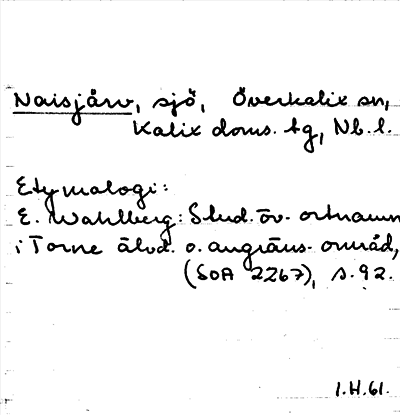 Naisjärv, sjö, Överkalix sn,
Kalix doms. tg, Nb. l.
Etymologi:
E. Wahlberg: Stud. öv. ortnamn
i Torne älvd. o. angräns. områd,
(SOA 2267), s. 92.
1.H.61.